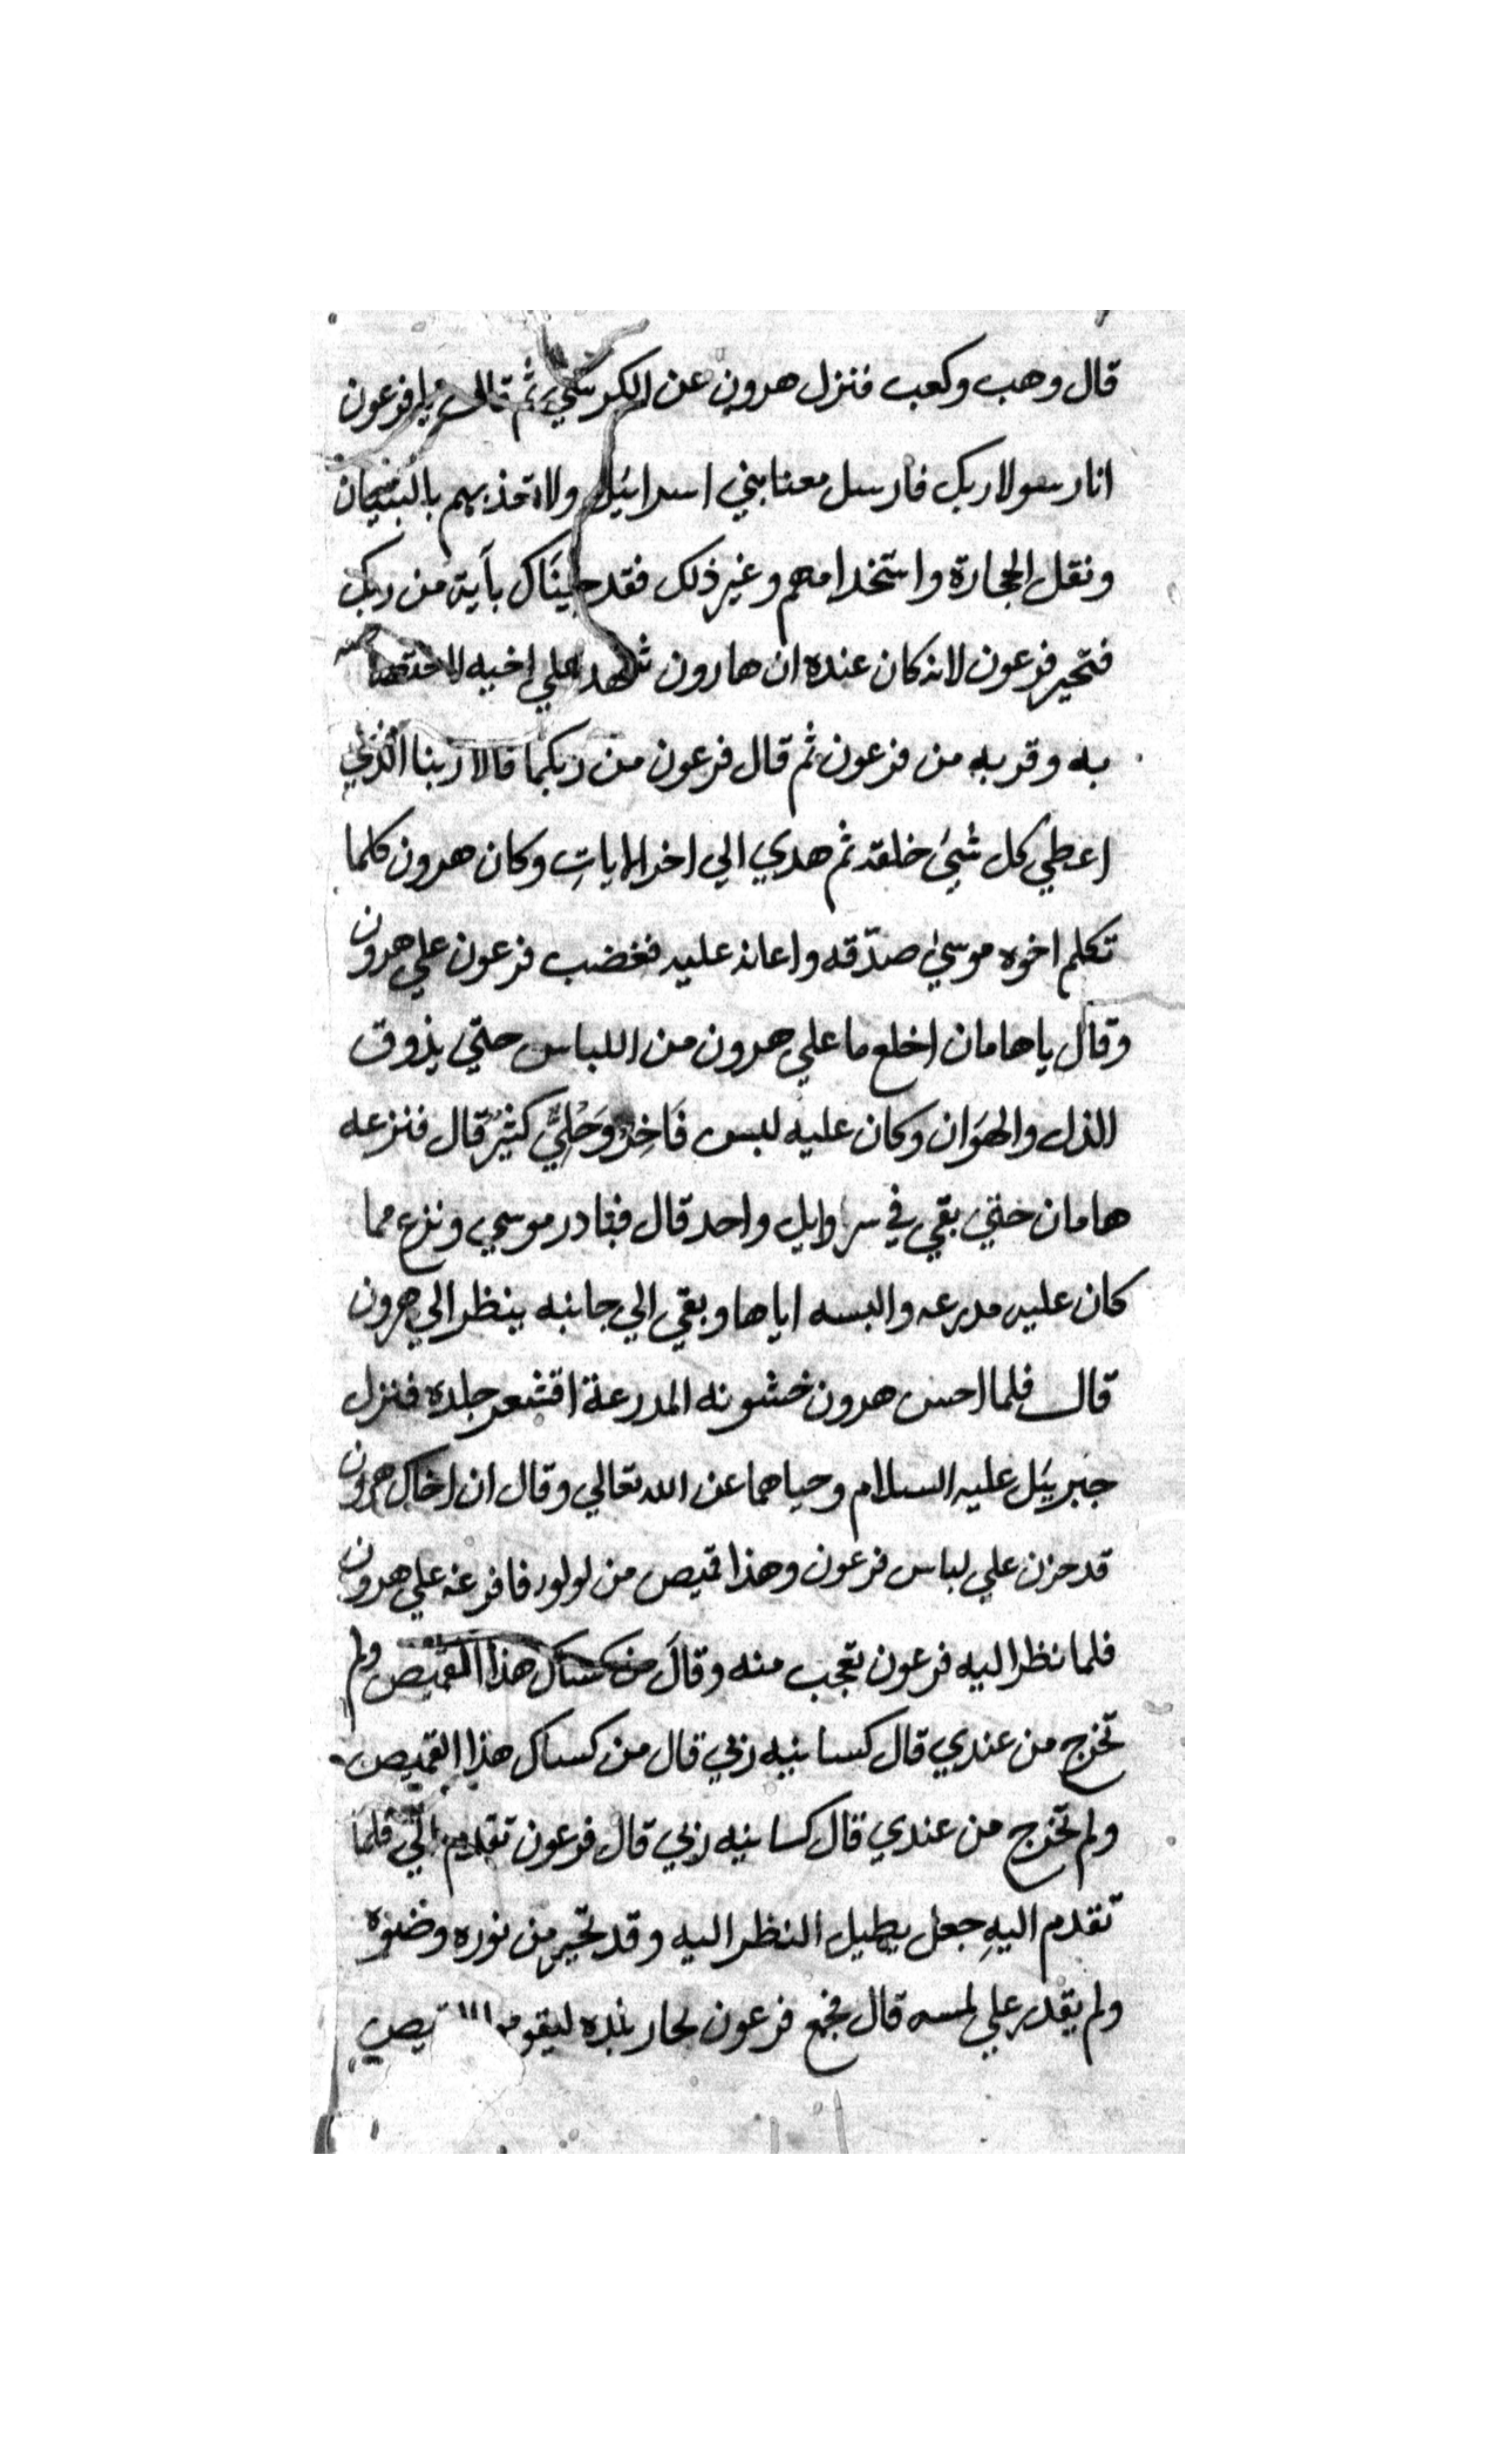 قال وهب وكعب فنزل هرون عن الكرسي ثم قال يا فرعون
انا رسولا ربك فارسل معنا بني اسرائيل ولا تعذبهم بالبنيان
ونقل الحجارة واستخدامهم وغير ذلك فقد جيناك بآية من ربك
فتحير فرعون لانه كان عنده ان هارون شهد علي اخيه لاختصاصه
به وقربه من فرعون ثم قال فرعون من ربكما قالا ربنا الذي
اعطي كل شيئ خلقه ثم هدي الي اخر الايات وكان هرون كلما
تكلم اخوه موسي صدّقه واعانه عليه فغضب فرعون علي هرون
وقال يا هامان اخلع ما علي هرون من اللباس حتي يذوق
الذل والهوان وكان عليه لبس فَاخِرٌ وَحُلِيٌّ كثيرٌ قال فنزعه
هامان حتي بقي في سراويل واحد قال فبادر موسي ونزع مما
كان عليه مدرعه والبسه اياها وبقي الي جانبه ينظر الي هرون
قال فلما احس هرون خشونه المدرعة اقشعر جلده فنزل
جبريئل عليه السلام وحياهما عن الله تعالي وقال ان اخاك هرون
قد حزن علي لباس فرعون وهذا قميص من لولو فافرغه علي هرون
فلما نظر اليه فرعون تعجب منه وقال من كساك هذا القميص ولم
تخرج من عندي قال كسانيه ربي قال من كساك هذا القميص
ولم تخرج من عندي قال كسانيه ربي قال فرعون تقدم الّي فلما
تقدم اليهِ جعل يطيل النظر اليه وقد تحير من نوره وضوه
ولم يقدر علي لمسه قال فجمع فرعون تجار بلده ليقوموا القميص